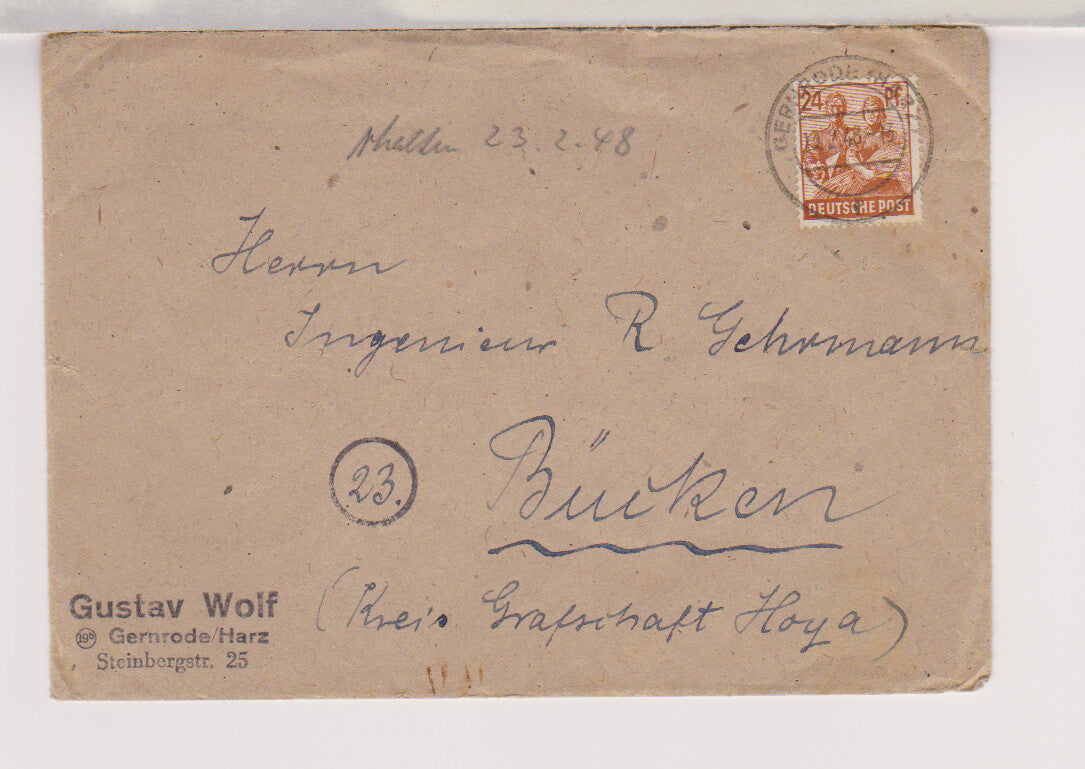 Erhalten 23.2.48
24 Pf
DEUTSCHE POST
GERNRODE
Herrn
Ingenieur R Gehrmann
23.
Bücken
(Kreis Grafschaft Hoya)
Gustav Wolf
19b Gernrode/Harz
Steinbergstr. 25